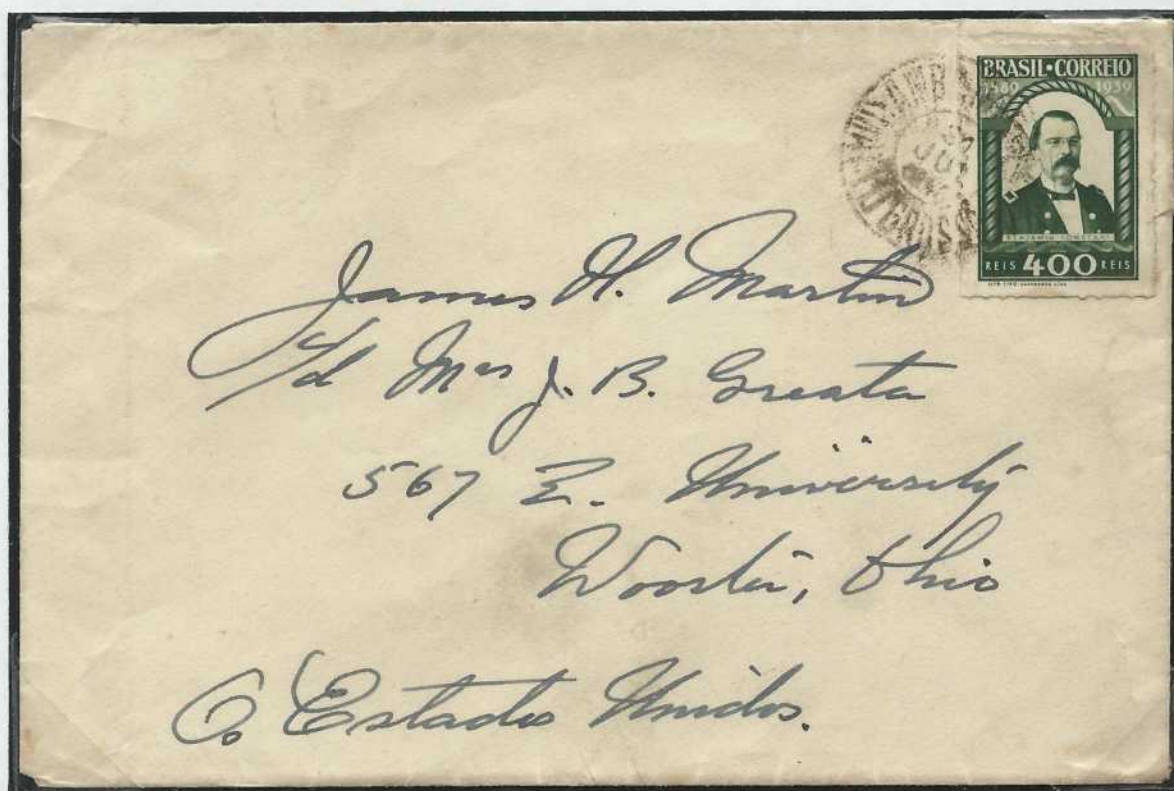 BRASIL·CORREIO
1889 1939
BENJAMIN CONSTANT
REIS 400 REIS
James H. Martin
c/o Mrs J. B. Greata
567 E. University
Wooster, Ohio
Estados Unidos.